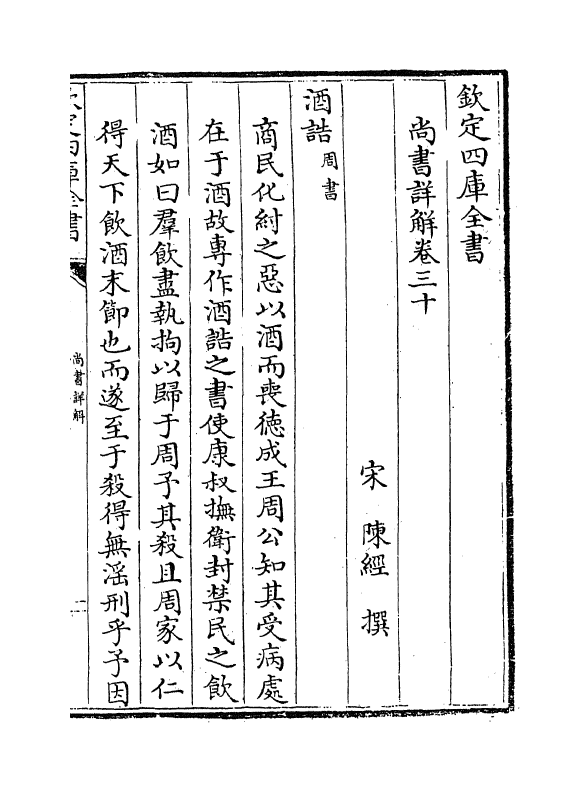 欽定四庫全書
尚書詳解卷三十
宋　陳經　撰
酒誥周書
商民化紂之惡以酒而喪徳成王周公知其受病處
在于酒故専作酒誥之書使康叔撫衛封禁民之飲
酒如曰羣飲盡執拘以歸于周予其殺且周家以仁
得天下飲酒末節也而遂至于殺得無滛刑乎予因
欽定四庫全書
尚書詳解